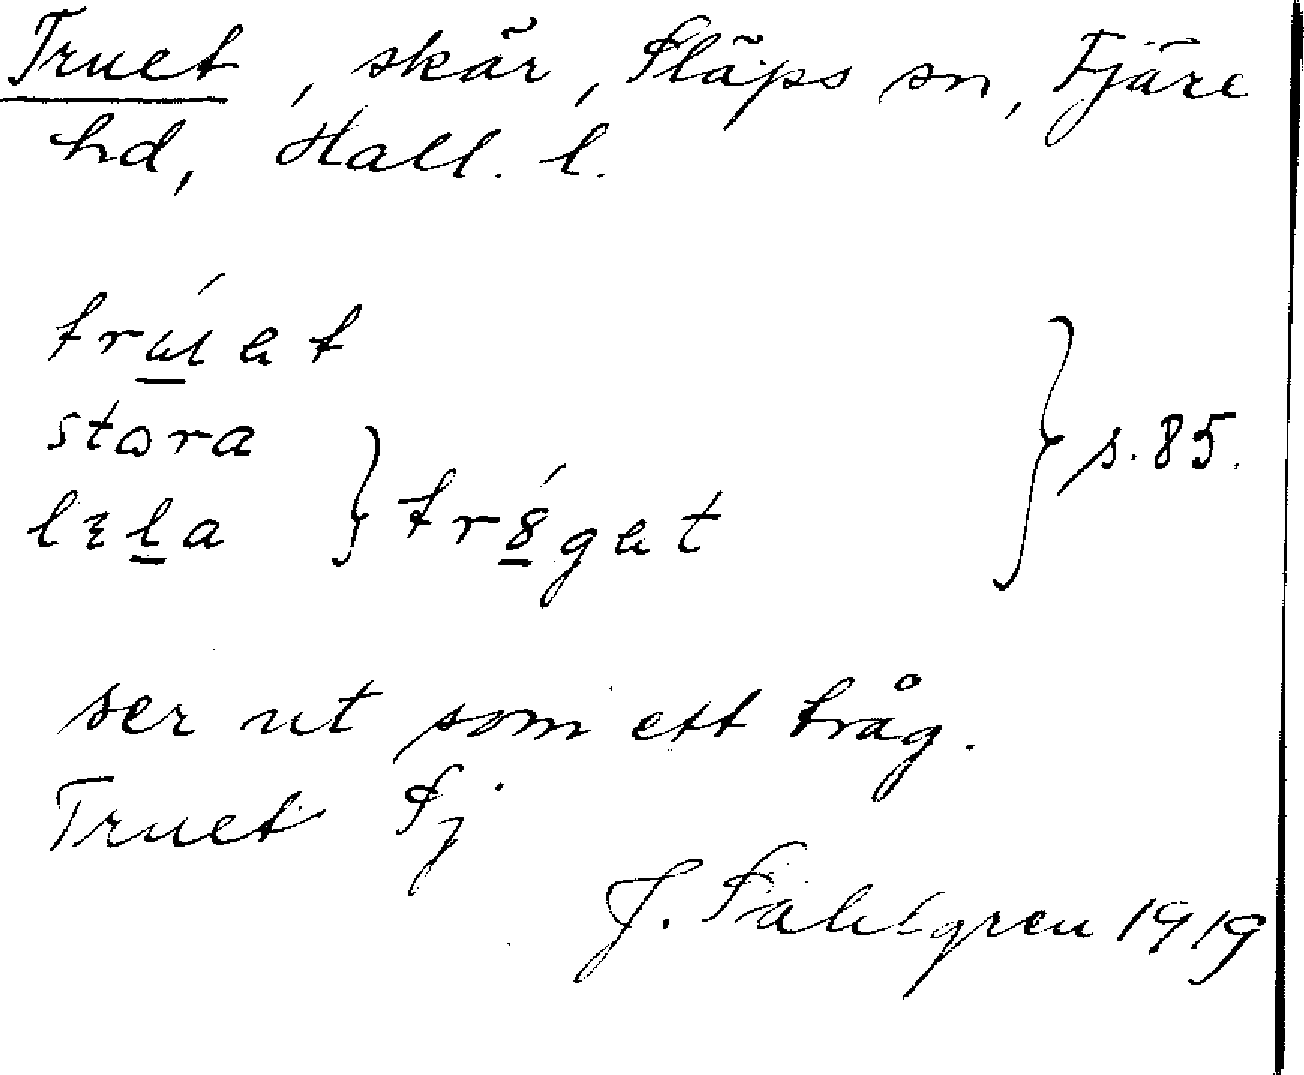 Truet, skär, Släps sn, Fjäre
hd, Hall. l.
trúet
stora
lɛla } tr8́get } s. 85.
ser ut som ett tråg.
Truet Sj
J. Sahlgren 1919